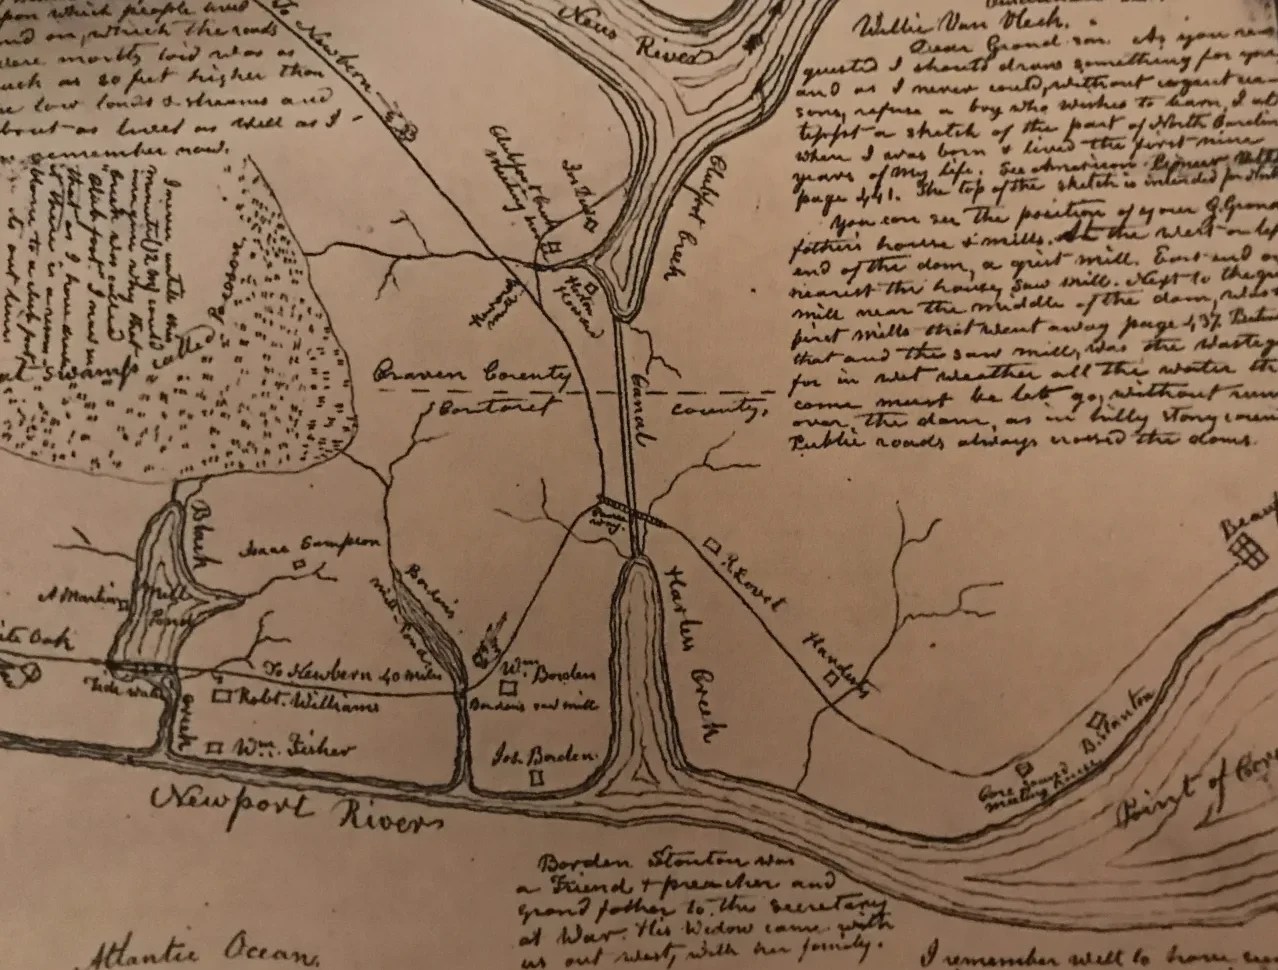 upon which people lived
and on, which the roads
were mostly laid was as
much as 20 feet higher than
the low lands & streams and
about as level as well as I
remember now.
I never until this
minute (12 M) could
imagine why that
creek was called
Clubfoot. I now see
that as I have drawn
it there is a
to a club foot
To Newbern
Neus River
Willie Van Vleck.
Dear Grand son. As you re-
quested I should draw something for you
and as I never could, without cogent rea-
sons, refuse a boy who wishes to learn, I at-
tempt a sketch of the part of North Carolina
where I was born & lived the first nine
years of my life. See American Pioneer
page 441. The top of the sketch is intended for
You can see the position of your G. Grand
fathers house & mills. At the west or left
end of the dam, a grist mill. East end or
nearest the house, saw mill. Next to the grist
mill near the middle of the dam, was
first mills that went away page 437. Between
that and the saw mill, was the wastegate
for in wet weather all the water that
come must be let go, without running
over the dam, as in hilly stony countries
Public roads always crossed the dams.
Clubfoot Creek
Meeting
Clubfoot Creek
Horton
Howard
called
Swamps
Craven County
Carteret county,
Canal
Black
Creek
Isaac Sampson
Mill
Pond
White Oak
Tide water
To Newbern 40 miles
Robt. Williams
Wm. Fisher
Bordens
mill Pond
Wm Borden
Bordens saw mill
Jos. Borden
Harlow Creek
R. Lovet
Hardesty
B. Stanton
Core Sound
meeting house
Newport River
Point of
Borden Stanton was
a Friend & preacher and
grand father to the secretary
at War. His Widow came with
us out west, with her family.
Atlantic Ocean.
I remember well to have